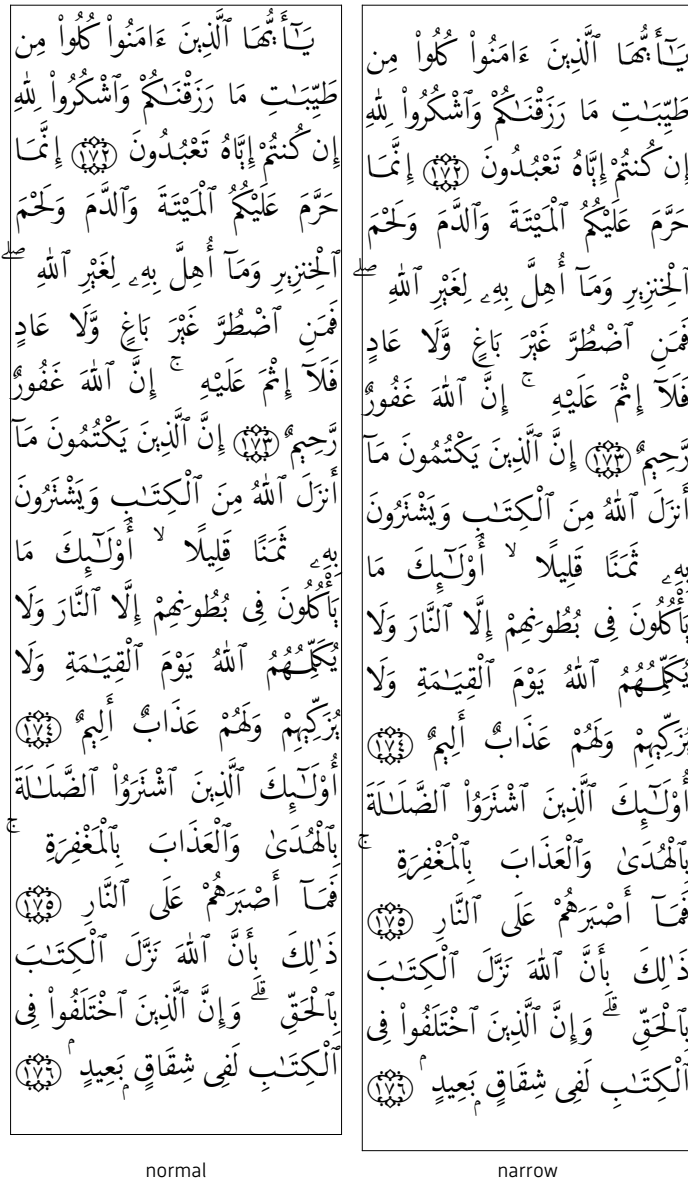 يَـٰٓأَيُّهَا ٱلَّذِينَ ءَامَنُوا۟ كُلُوا۟ مِن
طَيِّبَـٰتِ مَا رَزَقْنَـٰكُمْ وَٱشْكُرُوا۟ لِلَّهِ
إِن كُنتُمْ إِيَّاهُ تَعْبُدُونَ ١٧٢ إِنَّمَا
حَرَّمَ عَلَيْكُمُ ٱلْمَيْتَةَ وَٱلدَّمَ وَلَحْمَ
ٱلْخِنزِيرِ وَمَآ أُهِلَّ بِهِۦ لِغَيْرِ ٱللَّهِ ۖ
فَمَنِ ٱضْطُرَّ غَيْرَ بَاغٍ وَلَا عَادٍ
فَلَآ إِثْمَ عَلَيْهِ ۚ إِنَّ ٱللَّهَ غَفُورٌ
رَّحِيمٌ ١٧٣ إِنَّ ٱلَّذِينَ يَكْتُمُونَ مَآ
أَنزَلَ ٱللَّهُ مِنَ ٱلْكِتَـٰبِ وَيَشْتَرُونَ
بِهِۦ ثَمَنًا قَلِيلًا ۙ أُو۟لَـٰٓئِكَ مَا
يَأْكُلُونَ فِى بُطُونِهِمْ إِلَّا ٱلنَّارَ وَلَا
يُكَلِّمُهُمُ ٱللَّهُ يَوْمَ ٱلْقِيَـٰمَةِ وَلَا
يُزَكِّيهِمْ وَلَهُمْ عَذَابٌ أَلِيمٌ ١٧٤
أُو۟لَـٰٓئِكَ ٱلَّذِينَ ٱشْتَرَوُا۟ ٱلضَّلَـٰلَةَ
بِٱلْهُدَىٰ وَٱلْعَذَابَ بِٱلْمَغْفِرَةِ ۚ
فَمَآ أَصْبَرَهُمْ عَلَى ٱلنَّارِ ١٧٥
ذَٰلِكَ بِأَنَّ ٱللَّهَ نَزَّلَ ٱلْكِتَـٰبَ
بِٱلْحَقِّ ۗ وَإِنَّ ٱلَّذِينَ ٱخْتَلَفُوا۟ فِى
ٱلْكِتَـٰبِ لَفِى شِقَاقٍۭ بَعِيدٍ ۢ ١٧٦
normal
يَـٰٓأَيُّهَا ٱلَّذِينَ ءَامَنُوا۟ كُلُوا۟ مِن
طَيِّبَـٰتِ مَا رَزَقْنَـٰكُمْ وَٱشْكُرُوا۟ لِلَّهِ
إِن كُنتُمْ إِيَّاهُ تَعْبُدُونَ ١٧٢ إِنَّمَا
حَرَّمَ عَلَيْكُمُ ٱلْمَيْتَةَ وَٱلدَّمَ وَلَحْمَ
ٱلْخِنزِيرِ وَمَآ أُهِلَّ بِهِۦ لِغَيْرِ ٱللَّهِ ۖ
فَمَنِ ٱضْطُرَّ غَيْرَ بَاغٍ وَلَا عَادٍ
فَلَآ إِثْمَ عَلَيْهِ ۚ إِنَّ ٱللَّهَ غَفُورٌ
رَّحِيمٌ ١٧٣ إِنَّ ٱلَّذِينَ يَكْتُمُونَ مَآ
أَنزَلَ ٱللَّهُ مِنَ ٱلْكِتَـٰبِ وَيَشْتَرُونَ
بِهِۦ ثَمَنًا قَلِيلًا ۙ أُو۟لَـٰٓئِكَ مَا
يَأْكُلُونَ فِى بُطُونِهِمْ إِلَّا ٱلنَّارَ وَلَا
يُكَلِّمُهُمُ ٱللَّهُ يَوْمَ ٱلْقِيَـٰمَةِ وَلَا
يُزَكِّيهِمْ وَلَهُمْ عَذَابٌ أَلِيمٌ ١٧٤
أُو۟لَـٰٓئِكَ ٱلَّذِينَ ٱشْتَرَوُا۟ ٱلضَّلَـٰلَةَ
بِٱلْهُدَىٰ وَٱلْعَذَابَ بِٱلْمَغْفِرَةِ ۚ
فَمَآ أَصْبَرَهُمْ عَلَى ٱلنَّارِ ١٧٥
ذَٰلِكَ بِأَنَّ ٱللَّهَ نَزَّلَ ٱلْكِتَـٰبَ
بِٱلْحَقِّ ۗ وَإِنَّ ٱلَّذِينَ ٱخْتَلَفُوا۟ فِى
ٱلْكِتَـٰبِ لَفِى شِقَاقٍۭ بَعِيدٍ ۢ ١٧٦
narrow